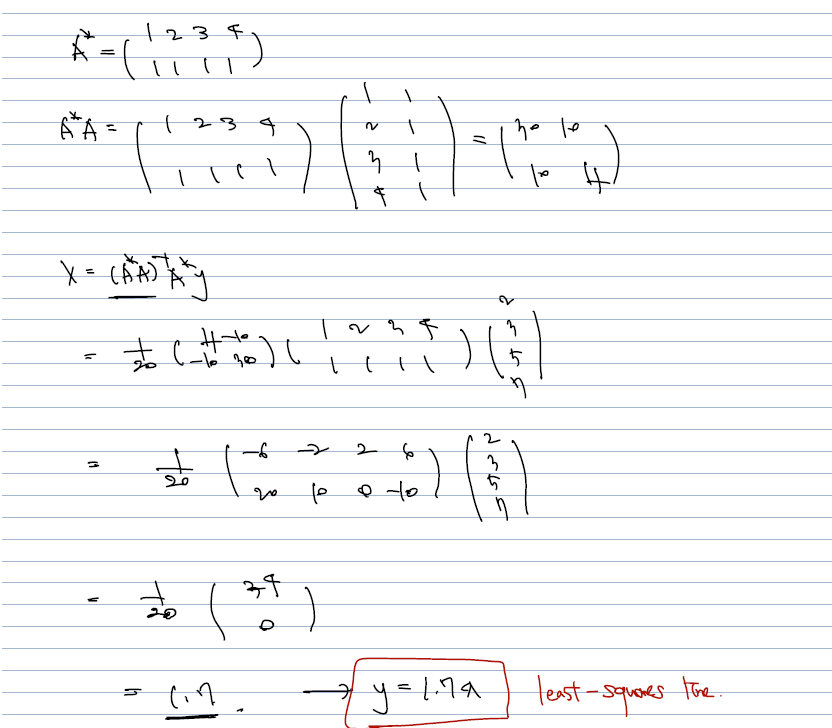 A* = ( 1 2 3 4
1 1 1 1 )
A*A = ( 1 2 3 4
1 1 1 1 ) ( 1 1
2 1
3 1
4 1 ) = ( 30 10
10 4 )
X = (A*A)⁻¹ A* y
= 1/20 ( 4 -10
-10 30 ) ( 1 2 3 4
1 1 1 1 ) ( 2
3
5
7 )
= 1/20 ( -6 -2 2 6
20 10 0 -10 ) ( 2
3
5
7 )
= 1/20 ( 34
0 )
= 1.7 . → y = 1.7x least-squares line.